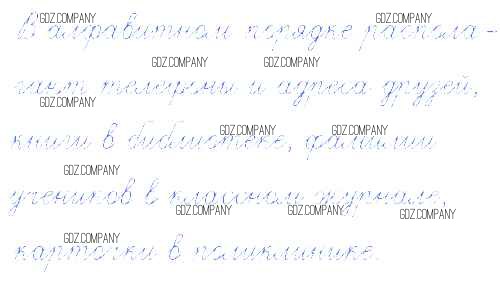 В алфавитном порядке распола-
гают телефоны и адреса друзей,
книги в библиотеке, фамилии
учеников в классном журнале,
карточки в поликлинике.
GDZ.COMPANY
GDZ.COMPANY
GDZ.COMPANY
GDZ.COMPANY
GDZ.COMPANY
GDZ.COMPANY
GDZ.COMPANY
GDZ.COMPANY
GDZ.COMPANY
GDZ.COMPANY
GDZ.COMPANY
GDZ.COMPANY